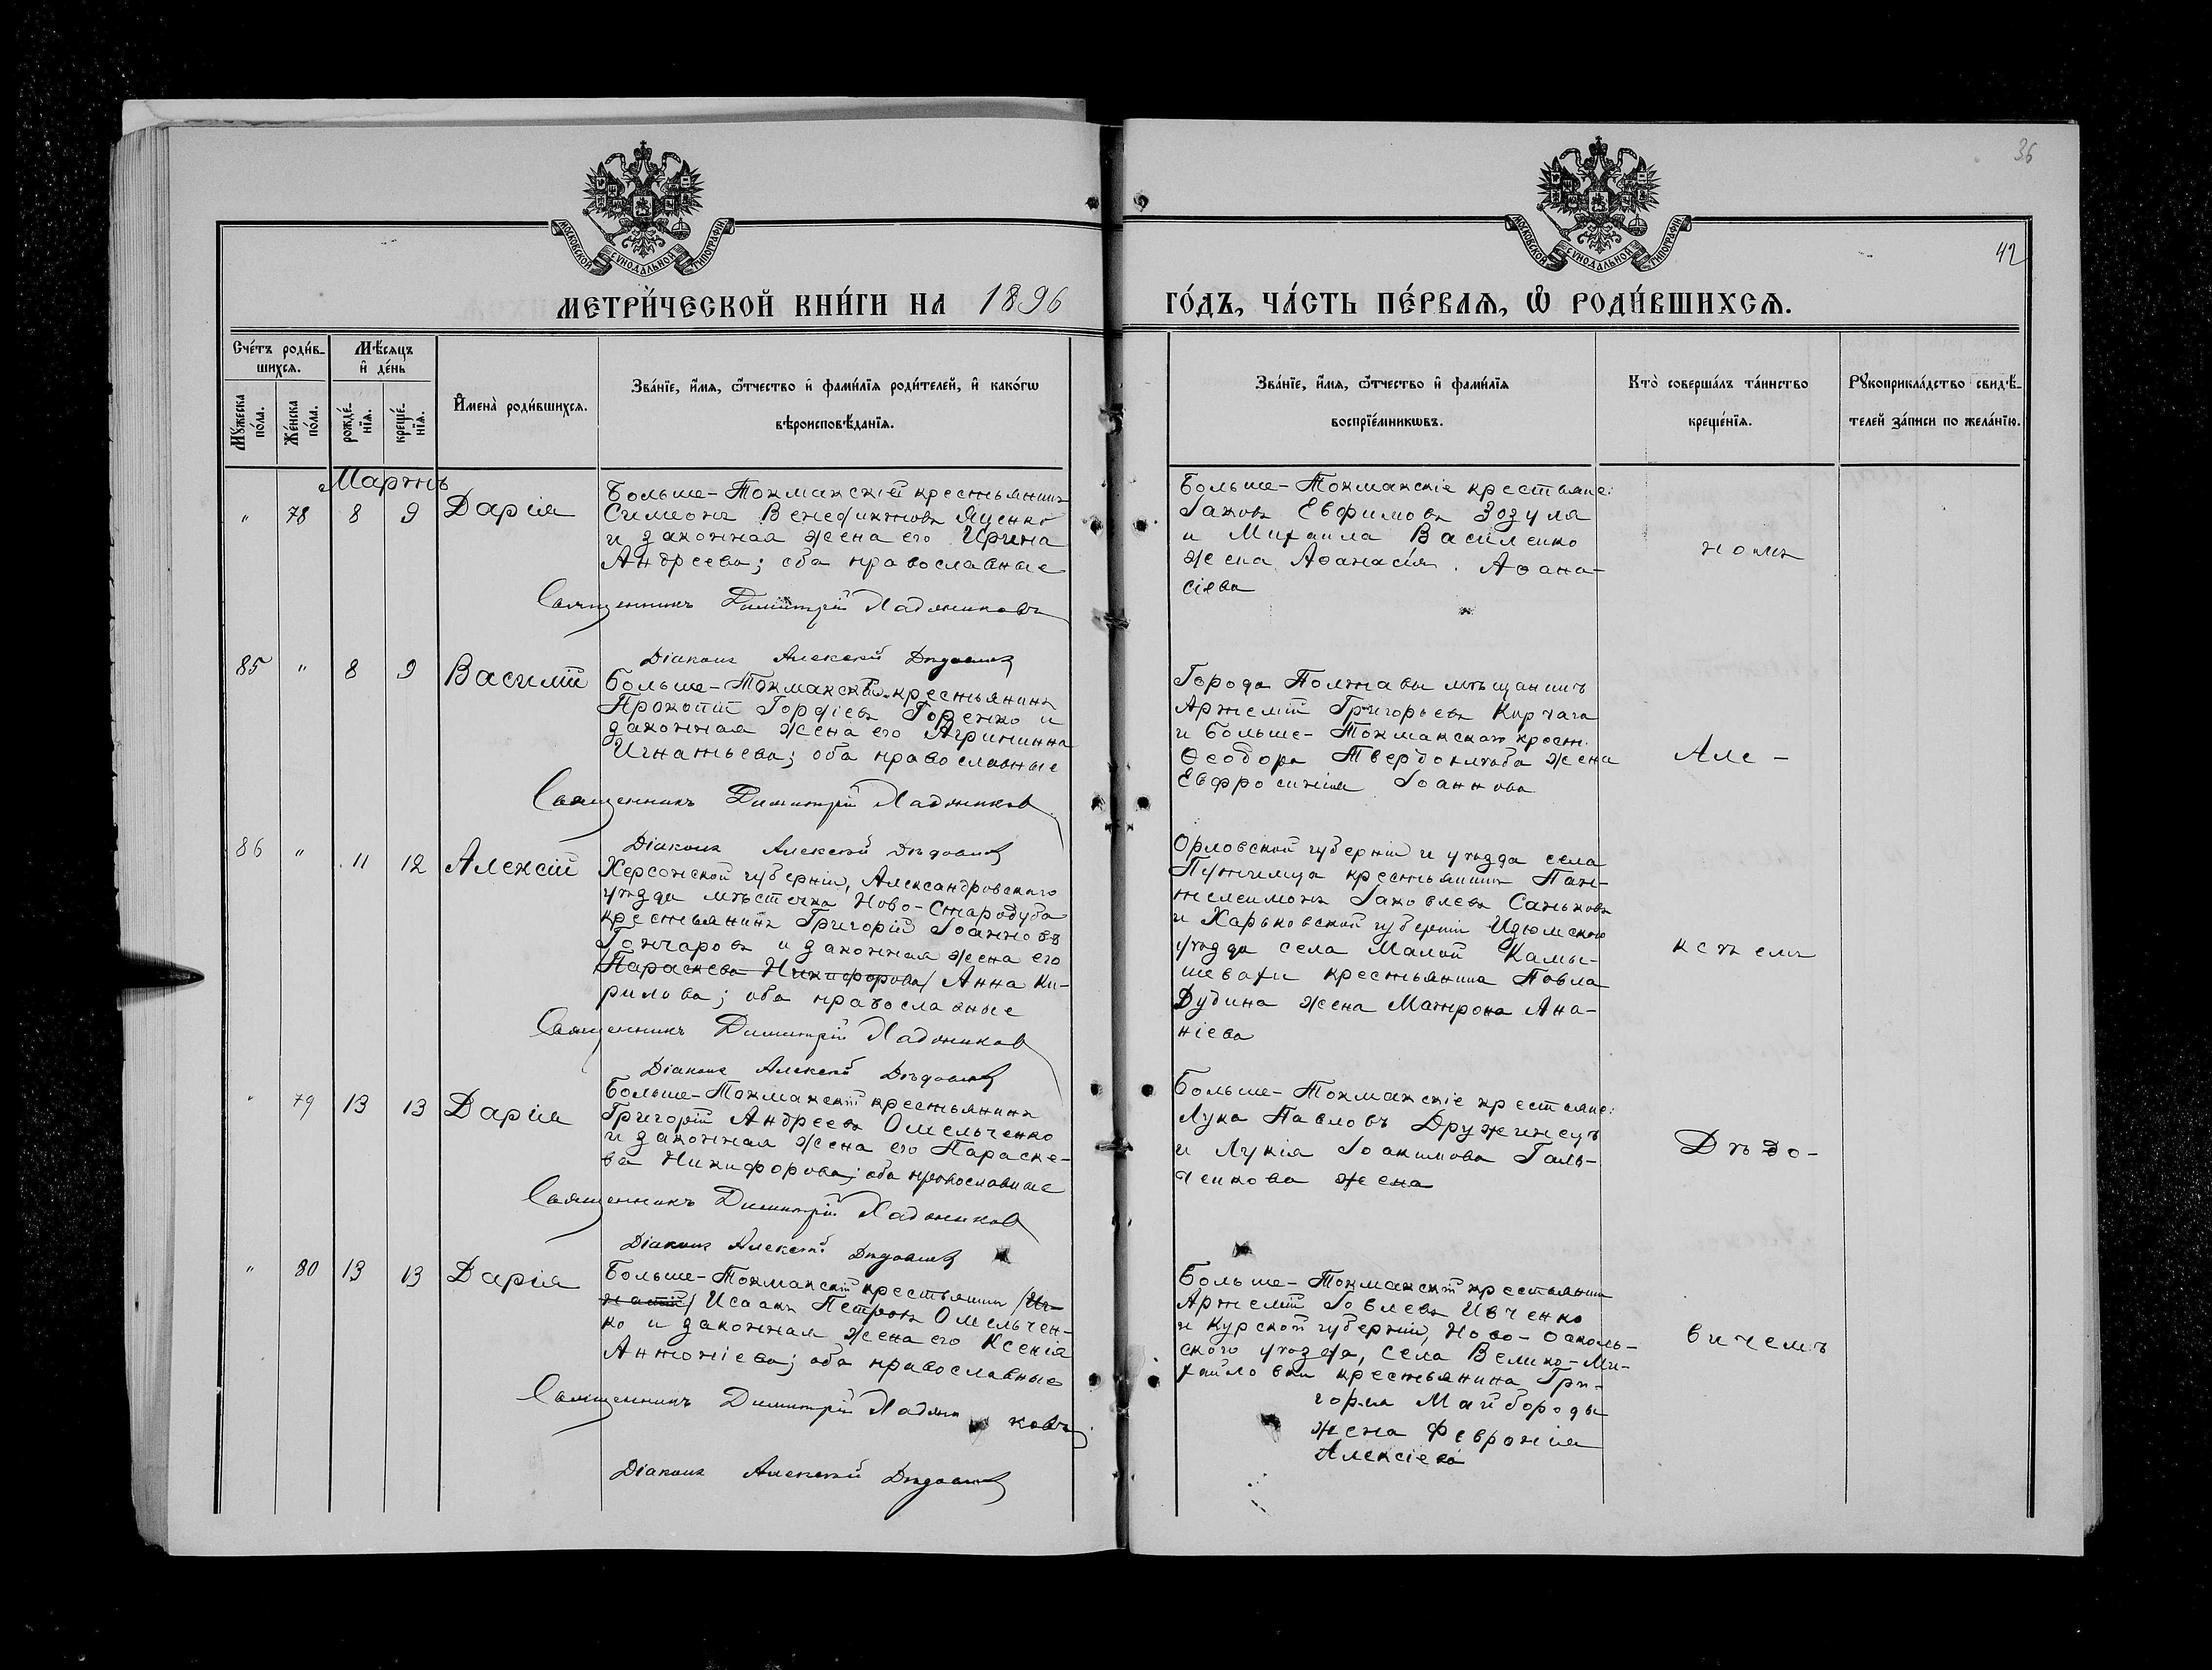 36
42
МОСКОВСКОЙ СѴНОДАЛЬНОЙ ТИПОГРАФІИ
МОСКОВСКОЙ СѴНОДАЛЬНОЙ ТИПОГРАФІИ
МЕТРИ́ЧЕСКОЙ КНИ́ГИ НА 1896
ГО́ДЪ, ЧА́СТЬ ПЕ́РВАѦ, Ѡ РОДИ́ВШИХСѦ.
Сче́тъ роди́в-
шихсѧ.
Мѣ́сяцъ
и҆ де́нь
Мꙋ́жеска
по́ла.
Же́нска
по́ла.
рожде́-
нїѧ.
креще́-
нїѧ.
И҆мена̀ роди́вшихсѧ.
Зва́нїе, и҆́мѧ, ѻ҆́тчество и҆ фами́лїѧ роди́телей, и҆ како́гѡ
вѣроисповѣ́данїѧ.
Зва́нїе, и҆́мѧ, ѻ҆́тчество и҆ фами́лїѧ
воспрїе́мникѡвъ.
Кто̀ соверша́лъ та́инство
креще́нїѧ.
Рꙋкоприкла́дство свидѣ́-
телей за́писи по жела́нїю.
Мартъ
" 78 8 9 Дарія
Больше-Токмакскій крестьянинъ
Симеонъ Венедиктовъ Яценко
и законная жена его Ирина
Андреева; оба православные
Священникъ Димитрій Ладониковъ
Діаконъ Алексѣй Дѣдовичъ
Больше-Токмакскіе крестьяне:
Іаковъ Евфимовъ Зозуля
и Михаила Василенко
жена Аѳанасія Аѳана-
сіева
85 " 8 9 Василій
Больше-Токмакскій крестьянинъ
Прокопій Гордіевъ Горенко и
законная жена его Агриппина
Игнатьева; оба православные
Священникъ Димитрій Ладониковъ
Діаконъ Алексѣй Дѣдовичъ
Города Полтавы мѣщанинъ
Артемій Григорьевъ Корчага
и Больше-Токмакскаго крест.
Ѳеодора Твердохлѣба жена
Евфросинія Іоаннова
Але-
86 " 11 12 Алексій
Херсонской губерніи, Александровскаго
уѣзда мѣстечка Ново-Стародуба
крестьянинъ Григорій Іоанновъ
Гончаровъ и законная жена его
Параскева Никифорова/ Анна Ки-
рилова; оба православные
Священникъ Димитрій Ладониковъ
Діаконъ Алексѣй Дѣдовичъ
Орловской губерніи и уѣзда села
крестьянинъ Пан-
телеимонъ Іаковлевъ Саньковъ
и Харьковской губерніи Изюмскаго
уѣзда села Малой Камы-
шевахи крестьянина Павла
Дудина жена Матрона Ана-
ніева
ксѣемъ
" 79 13 13 Дарія
Больше-Токмакскій крестьянинъ
Григорій Андреевъ Омельченко
и законная жена его Параске-
ва Никифорова; оба православные
Священникъ Димитрій Ладониковъ
Діаконъ Алексѣй Дѣдовичъ
Больше-Токмакскіе крестьяне:
Лука Павловъ Дружинецъ
и Лукія Іоакимова Галь-
ченкова жена
Дѣдо-
" 80 13 13 Дарія
Больше-Токмакскій крестьянинъ /Иг-
натій/ Исаакъ Петровъ Омельчен-
ко и законная жена его Ксенія
Антоніева; оба православные
Священникъ Димитрій Ладониковъ
Діаконъ Алексѣй Дѣдовичъ
Больше-Токмакскій крестьянинъ
Артемій Іовлевъ Ивченко
и Курской губерніи, Ново-Осколь-
скаго уѣзда, села Велико-Ми-
хайловки крестьянина Гри-
горія Майбороды
жена Февронія
Алексіева
вичемъ